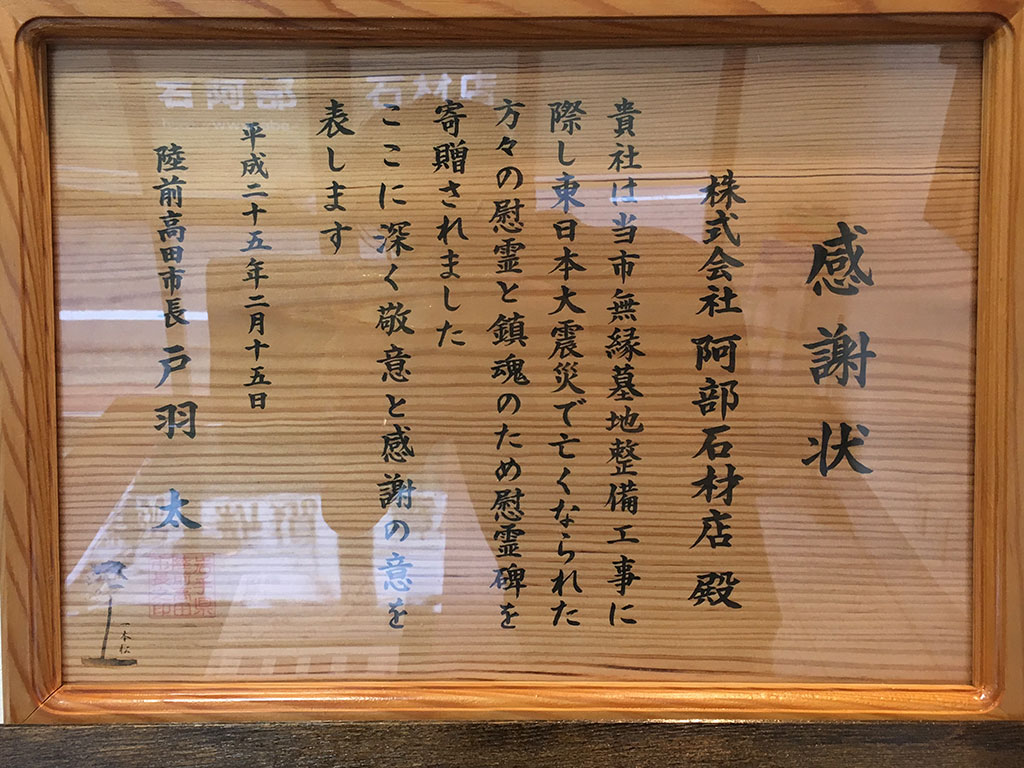 感謝状
株式会社 阿部石材店 殿
貴社は当市無縁墓地整備工事に
際し東日本大震災で亡くなられた
方々の慰霊と鎮魂のため慰霊碑を
寄贈されました
ここに深く敬意と感謝の意を
表します
平成二十五年二月十五日
陸前高田市長 戸羽 太
一本松
石阿部 石材店